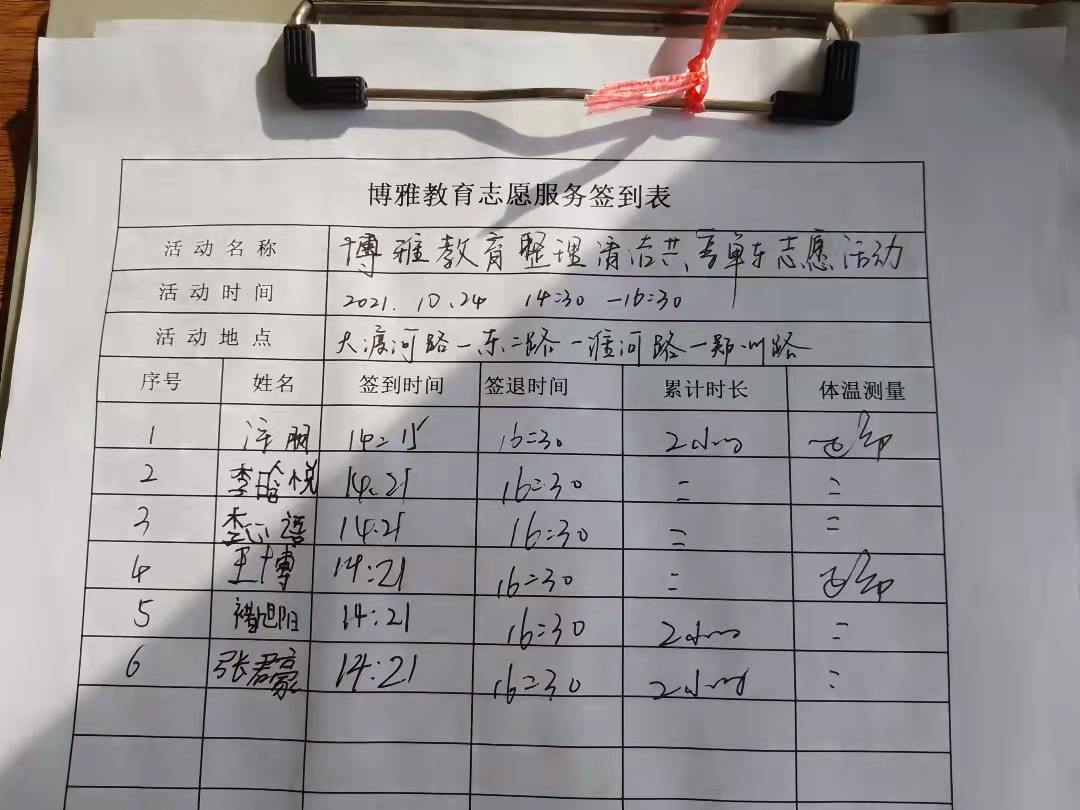 博雅教育志愿服务签到表
活动名称 博雅教育整理清洁共享单车志愿活动
活动时间 2021.10.24 14:30—16:30
活动地点 大渡河路—东二路—淮河路—郑州路
序号 姓名 签到时间 签退时间 累计时长 体温测量
1 14:15 16:30 2小时 正常
2 李晗悦 14:21 16:30 〃 〃
3 李心语 14:21 16:30 〃 〃
4 王博 14:21 16:30 〃 正常
5 褚旭阳 14:21 16:30 2小时 〃
6 张君豪 14:21 16:30 2小时 〃